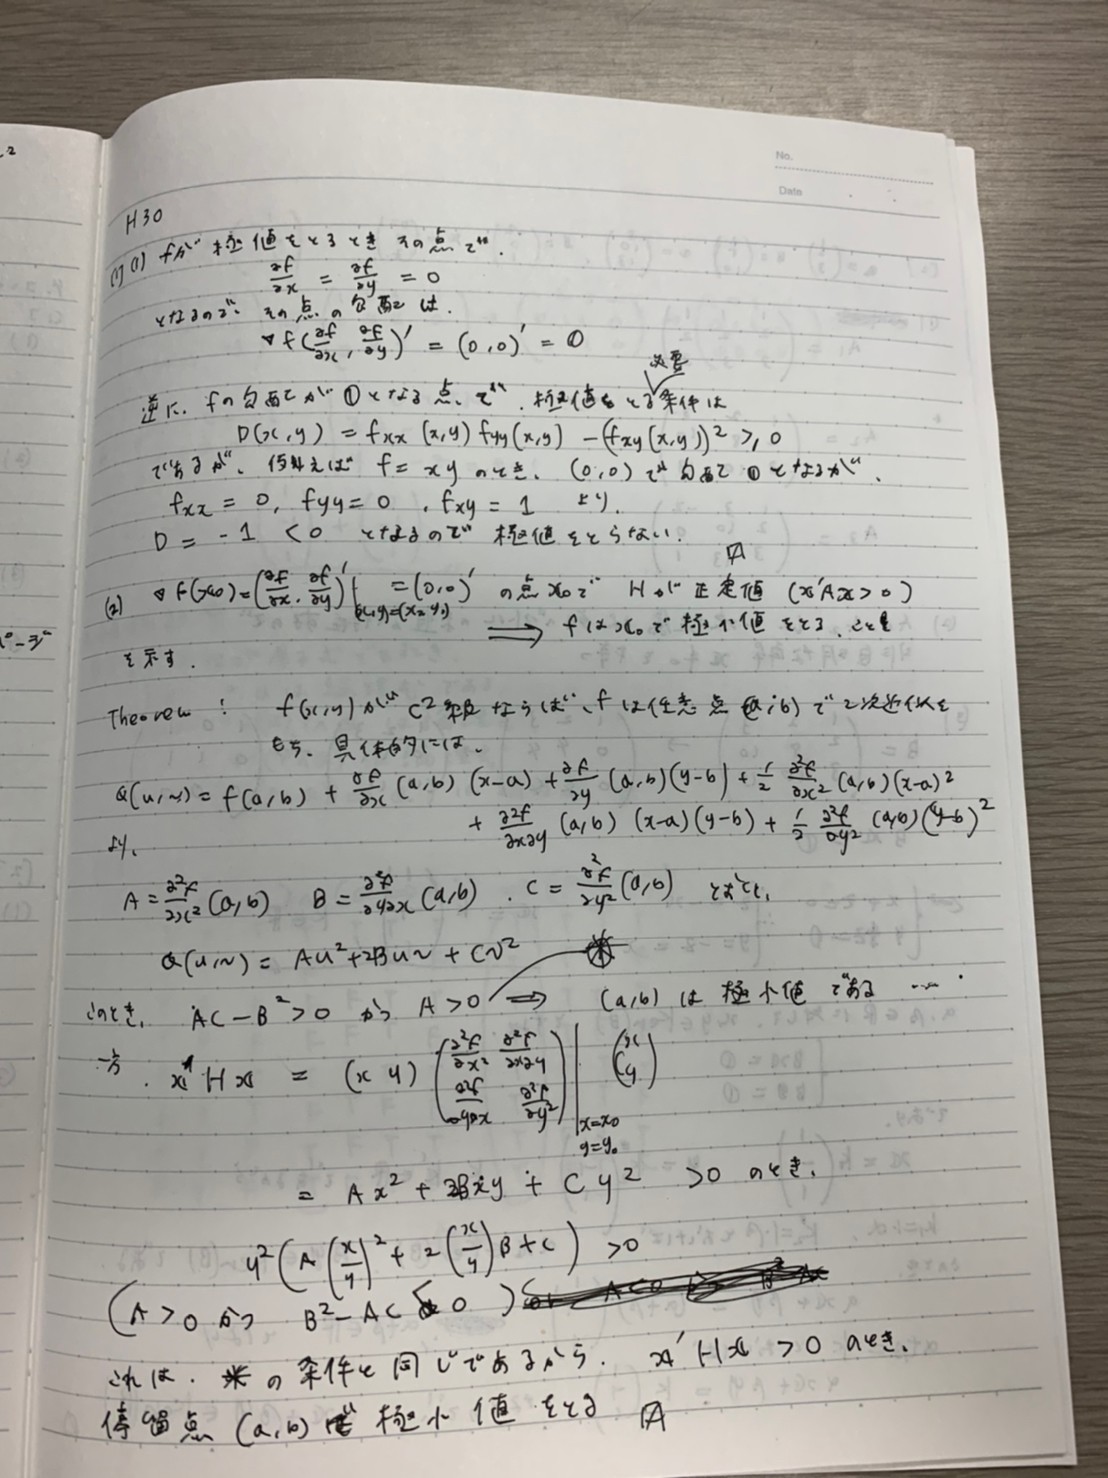 No.
Date
H30
(1) (1) fが 極値をとるとき その点で、
∂f/∂x = ∂f/∂y = 0
となるので、その点の勾配は、
∇f(∂f/∂x, ∂f/∂y)' = (0,0)' = ①
必要
逆に、fの勾配が ①となる点で、極値をとる条件は
D(x,y) = fxx (x,y) fyy(x,y) - (fxy(x,y))² ≧ 0
であるが、例えば f = xy のとき、(0,0) で勾配 ①となるが、
fxx = 0, fyy = 0, fxy = 1 より、
D = -1 < 0 となるので 極値をとらない.
(2) ∇f(x₀) = (∂f/∂x, ∂f/∂y)' |(x,y)=(x₀,y₀) = (0,0)' の点x₀で Hが正定値 (x'Ax > 0)
⟹ fはx₀で極小値をとる、ことを
を示す.
Theorem : f(x,y)が C²級ならば、fは任意点(a,b)で2次近似を
もち、具体的には、
Q(u,v) = f(a,b) + ∂f/∂x (a,b) (x-a) + ∂f/∂y (a,b)(y-b) + 1/2 ∂²f/∂x² (a,b)(x-a)²
+ ∂²f/∂x∂y (a,b) (x-a)(y-b) + 1/2 ∂²f/∂y² (a,b)(y-b)²
より、
A = ∂²f/∂x² (a,b) B = ∂²f/∂y∂x (a,b) , C = ∂²f/∂y² (a,b) とおくと、
Q(u,v) = Au² + 2Buv + Cv² ※
このとき、AC - B² > 0 かつ A > 0 ⟹ (a,b) は 極小値である ….
一方. x' H x = (x y) (∂²f/∂x² ∂²f/∂x∂y ∂²f/∂y∂x ∂²f/∂y²) | x=x₀ y=y₀ (x y)
= A x² + 2Bxy + C y² > 0 のとき、
y² ( A (x/y)² + 2 (x/y) B + C ) > 0
( A > 0 かつ B² - AC < 0 )
これは、※の条件と同じであるから、x' H x > 0 のとき、
停留点 (a,b)で 極小値をとる